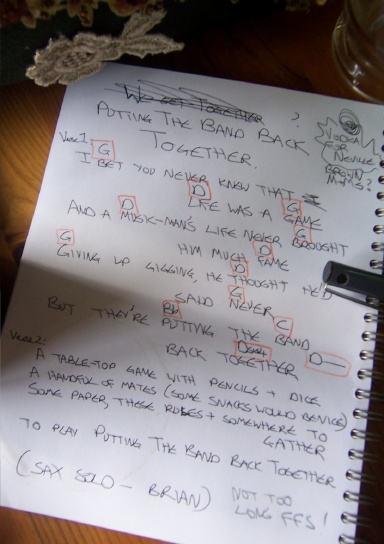 We Get Together ?
PUTTING THE BAND BACK
TOGETHER.
VODKA
FOR
NEVILLE
BROWN
M+Ms?
VERSE 1
G
I BET YOU NEVER KNEW THAT
D G
LIFE WAS A GAME
D G
AND A MUSIC-MAN'S LIFE NEVER BROUGHT
G D
HIM MUCH FAME
D
GIVING UP GIGGING, HE THOUGHT HE'D
G
SAID NEVER
Bb C
BUT THEY'RE PUTTING THE BAND
D
BACK TOGETHER
VERSE 2:
A TABLE-TOP GAME WITH PENCILS + DICE
A HANDFUL OF MATES (SOME SNACKS WOULD BE NICE)
SOME PAPER, THESE RULES + SOMEWHERE TO
GATHER
TO PLAY PUTTING THE BAND BACK TOGETHER
(SAX SOLO - BRIAN) NOT TOO
LONG FFS!